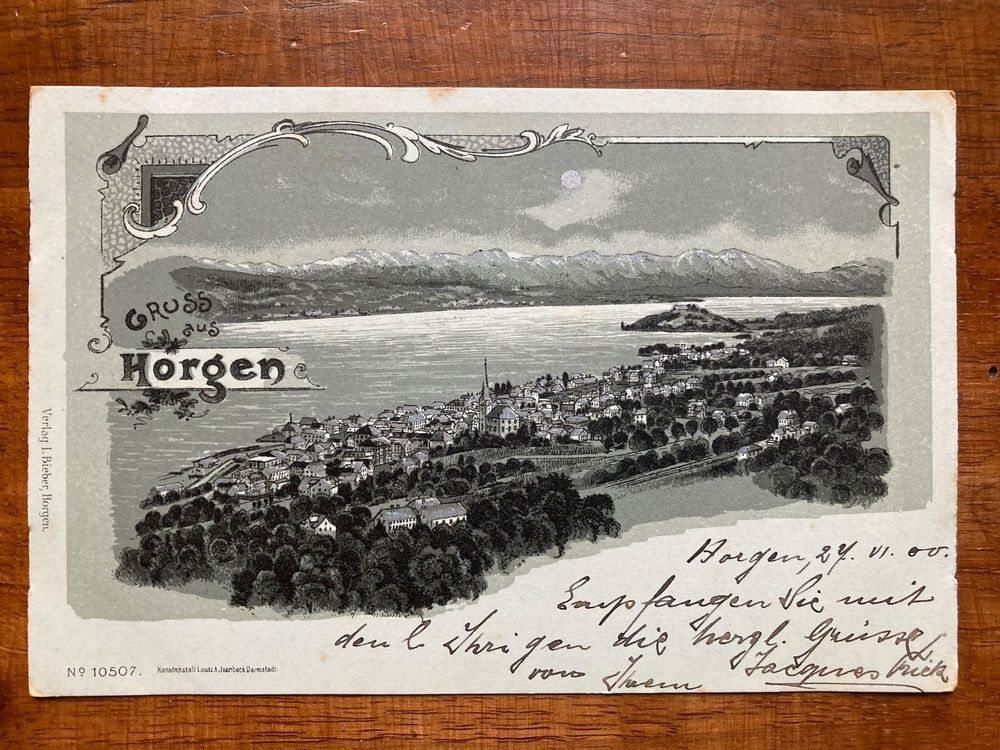 GRUSS
aus
Horgen
Verlag I. Bieber, Horgen.
Horgen, 27. VI. 00.
Empfangen Sie mit
den l. Ihrigen die herzl. Grüsse
von Ihrem Jacques
Nº 10507.
Kunstanstalt Lautz & Jsenbeck Darmstadt.